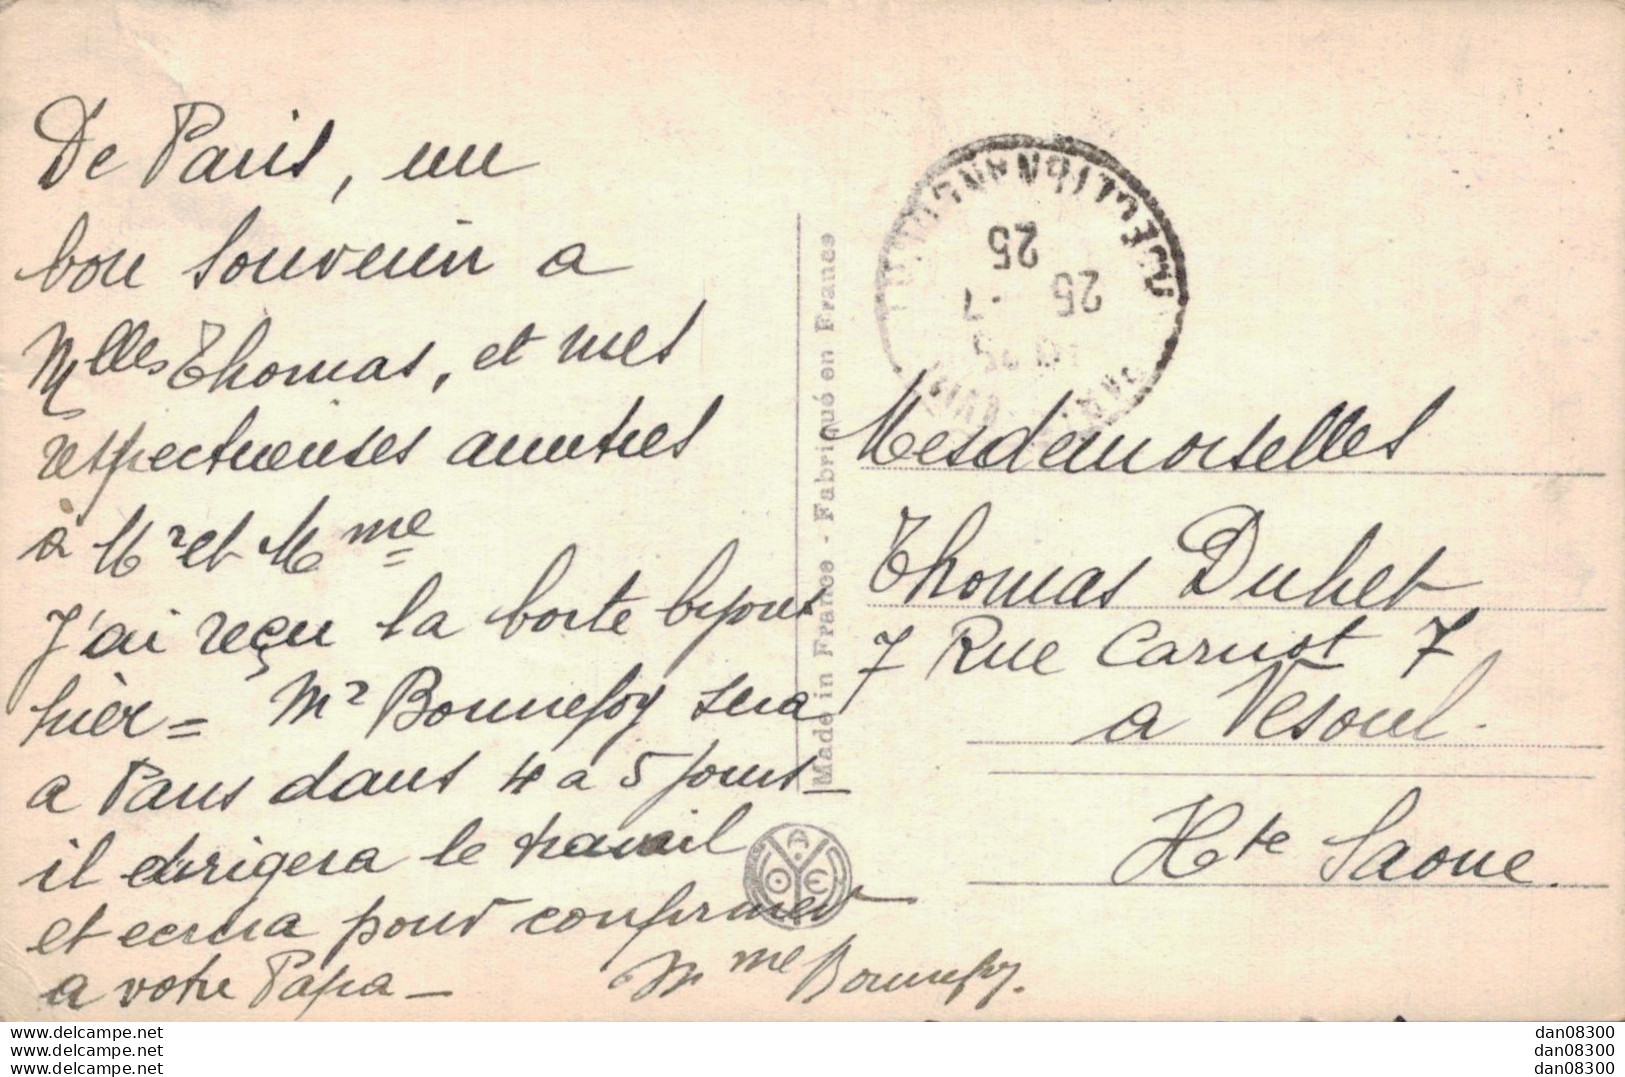 De Paris, un
bon souvenir a
Mlles Thomas, et mes
respectueuses amitiés
à Mr et Mme
J'ai reçu la boite bijous
hièr = Mr Bonnefoy sera
a Paris dans 4 a 5 jours _
il dirigera le travail
et ecrira pour confirmer
a votre Papa _
Mme Bonnefoy.
Made in France - Fabriqué en France
25
25 - 7
Mesdemoiselles
Thomas Duhet
7 Rue Carnot 7
a Vesoul.
Hte Saone.
www.delcampe.net
www.delcampe.net
www.delcampe.net
dan08300
dan08300
dan08300